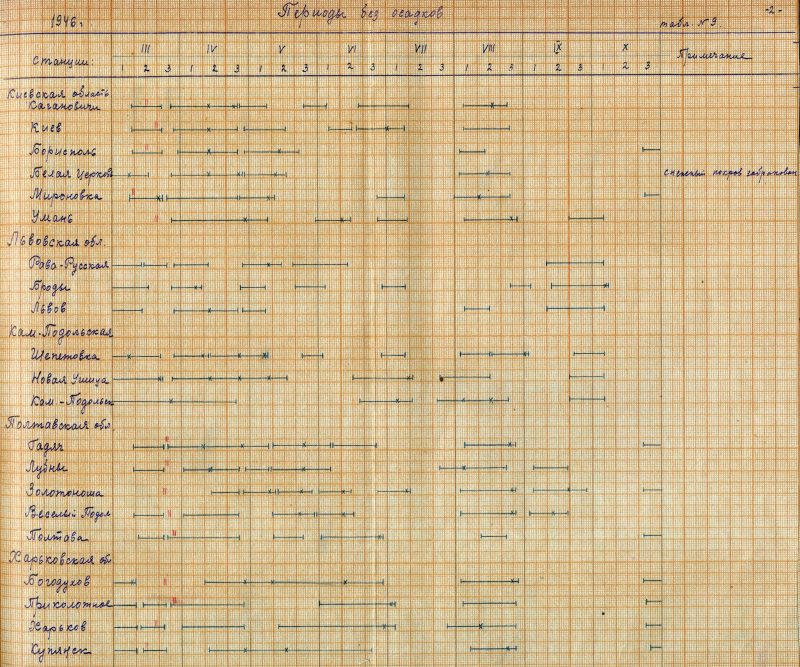 1946 г.
Периоды без осадков
-2-
табл. № 9.
Станции:
III IV V VI VII VIII IX X
Примечание
1 2 3 1 2 3 1 2 3 1 2 3 1 2 3 1 2 3 1 2 3 1 2 3
Киевская область
Кагановичи
Киев
Борисполь
Белая Церковь
снежный покров забракован
Мироновка
Умань
Львовская обл.
Рава-Русская
Броды
Львов
Кам-Подольская
Шепетовка
Новая Ушица
Кам.-Подольск
Полтавская обл.
Гадяч
Лубны
Золотоноша
Веселый Подол
Полтава
Харьковская об
Богодухов
Приколотное
Харьков
Купянск